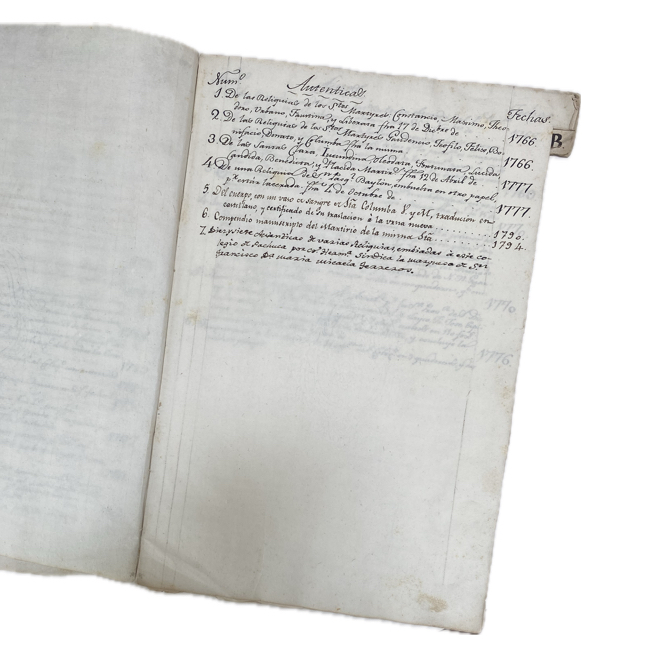 Num.º Autenticas. Fechas.
1. De las Reliquias de los Stos Martyres Constancio, Maximo, Theo-
doro, Urbano, Faustina, y Liberata fha 17 de Dicbre de 1766.
2. De las Reliquias de los Stos Martyres Gaudencio, Theofilo, Felix, Bo-
nifacio Donato, y Columba fha la misma 1766.
3. De las Santas Clara, Jucundina Theodara, Fortunata, Lucida
Candida, Benedicta, y Placida Martirs fha 12 de Abril de 1777.
4. De una Reliquia de Sn Pasql Baylon, embuelta en otro papel,
y certira laceada. fha 4 de Octubre de 1777.
5. Del cuerpo, con un vaso de sangre de Sta Columba V. y M, traducion en
castellano, y certificado de su traslacion à la urna nueva 1790.
6. Compendio manuscripto del Martirio de la misma Sta 1794.
7. Diez y siete Autenticas de varias Reliquias, embiadas à este co-
legio de Pachuca por Nra Hermª Sindica la marquesa de Sn
Francisco Dª maria micaela Terreros.
1770
1776.
B.